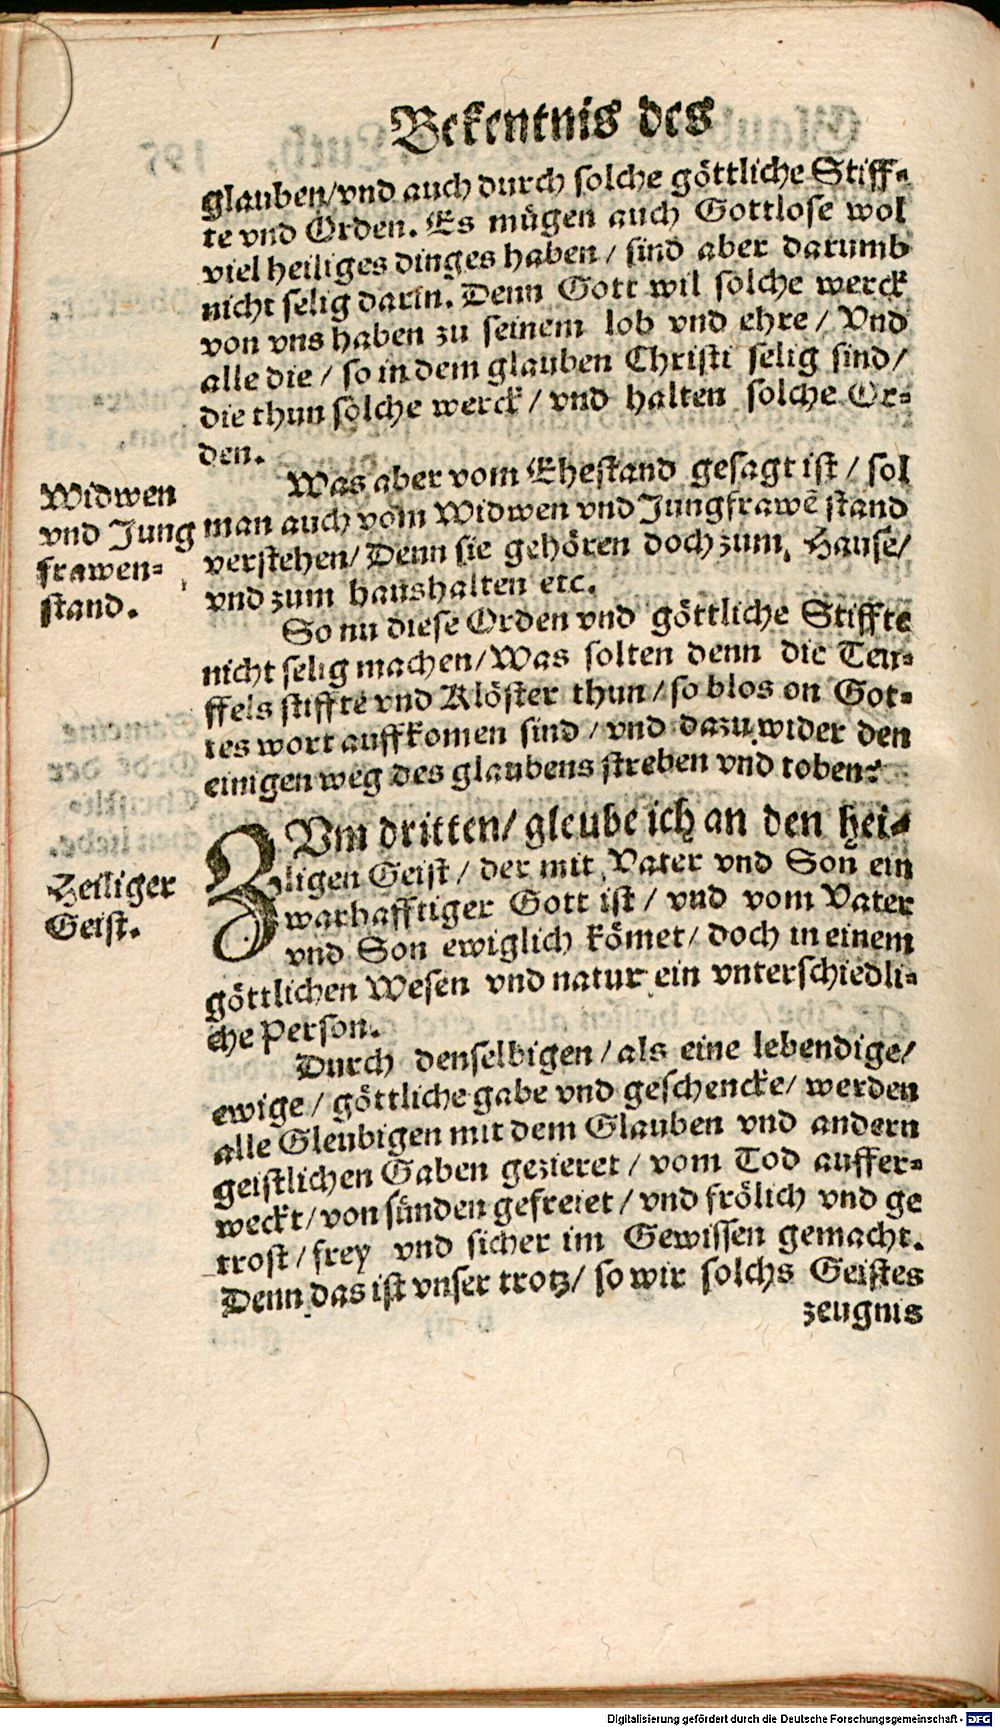 Bekentnis des
glauben/vnd auch durch solche göttliche Stiff-
te vnd Orden. Es mügen auch Gottlose wol
viel heiliges dinges haben / sind aber darumb
nicht selig darin. Denn Gott wil solche werck
von vns haben zu seinem lob vnd ehre / Vnd
alle die / so in dem glauben Christi selig sind/
die thun solche werck / vnd halten solche Or-
den.
Was aber vom Ehestand gesagt ist / sol
man auch vom Widwen vnd Jungfrawẽ stand
verstehen/ Denn sie gehören doch zum Hause/
vnd zum haushalten etc.
Widwen
vnd Jung
frawen-
stand.
So nu diese Orden vnd göttliche Stiffte
nicht selig machen/Was solten denn die Teu-
ffels stiffte vnd Klöster thun / so blos on Got-
tes wort auffkomen sind / vnd dazu wider den
einigen weg des glaubens streben vnd toben?
ZVm dritten/ gleube ich an den hei-
ligen Geist / der mit Vater vnd Son ein
warhafftiger Gott ist / vnd vom Vater
vnd Son ewiglich kömet/ doch in einem
göttlichen Wesen vnd natur ein vnterschiedli-
che Person.
Heiliger
Geist.
Durch denselbigen / als eine lebendige/
ewige / göttliche gabe vnd geschencke/ werden
alle Gleubigen mit dem Glauben vnd andern
geistlichen Gaben gezieret / vom Tod auffer-
weckt/ von sünden gefreiet / vnd frölich vnd ge
trost / frey vnd sicher im Gewissen gemacht.
Denn das ist vnser trotz/ so wir solchs Geistes
zeugnis
Digitalisierung gefördert durch die Deutsche Forschungsgemeinschaft - DFG